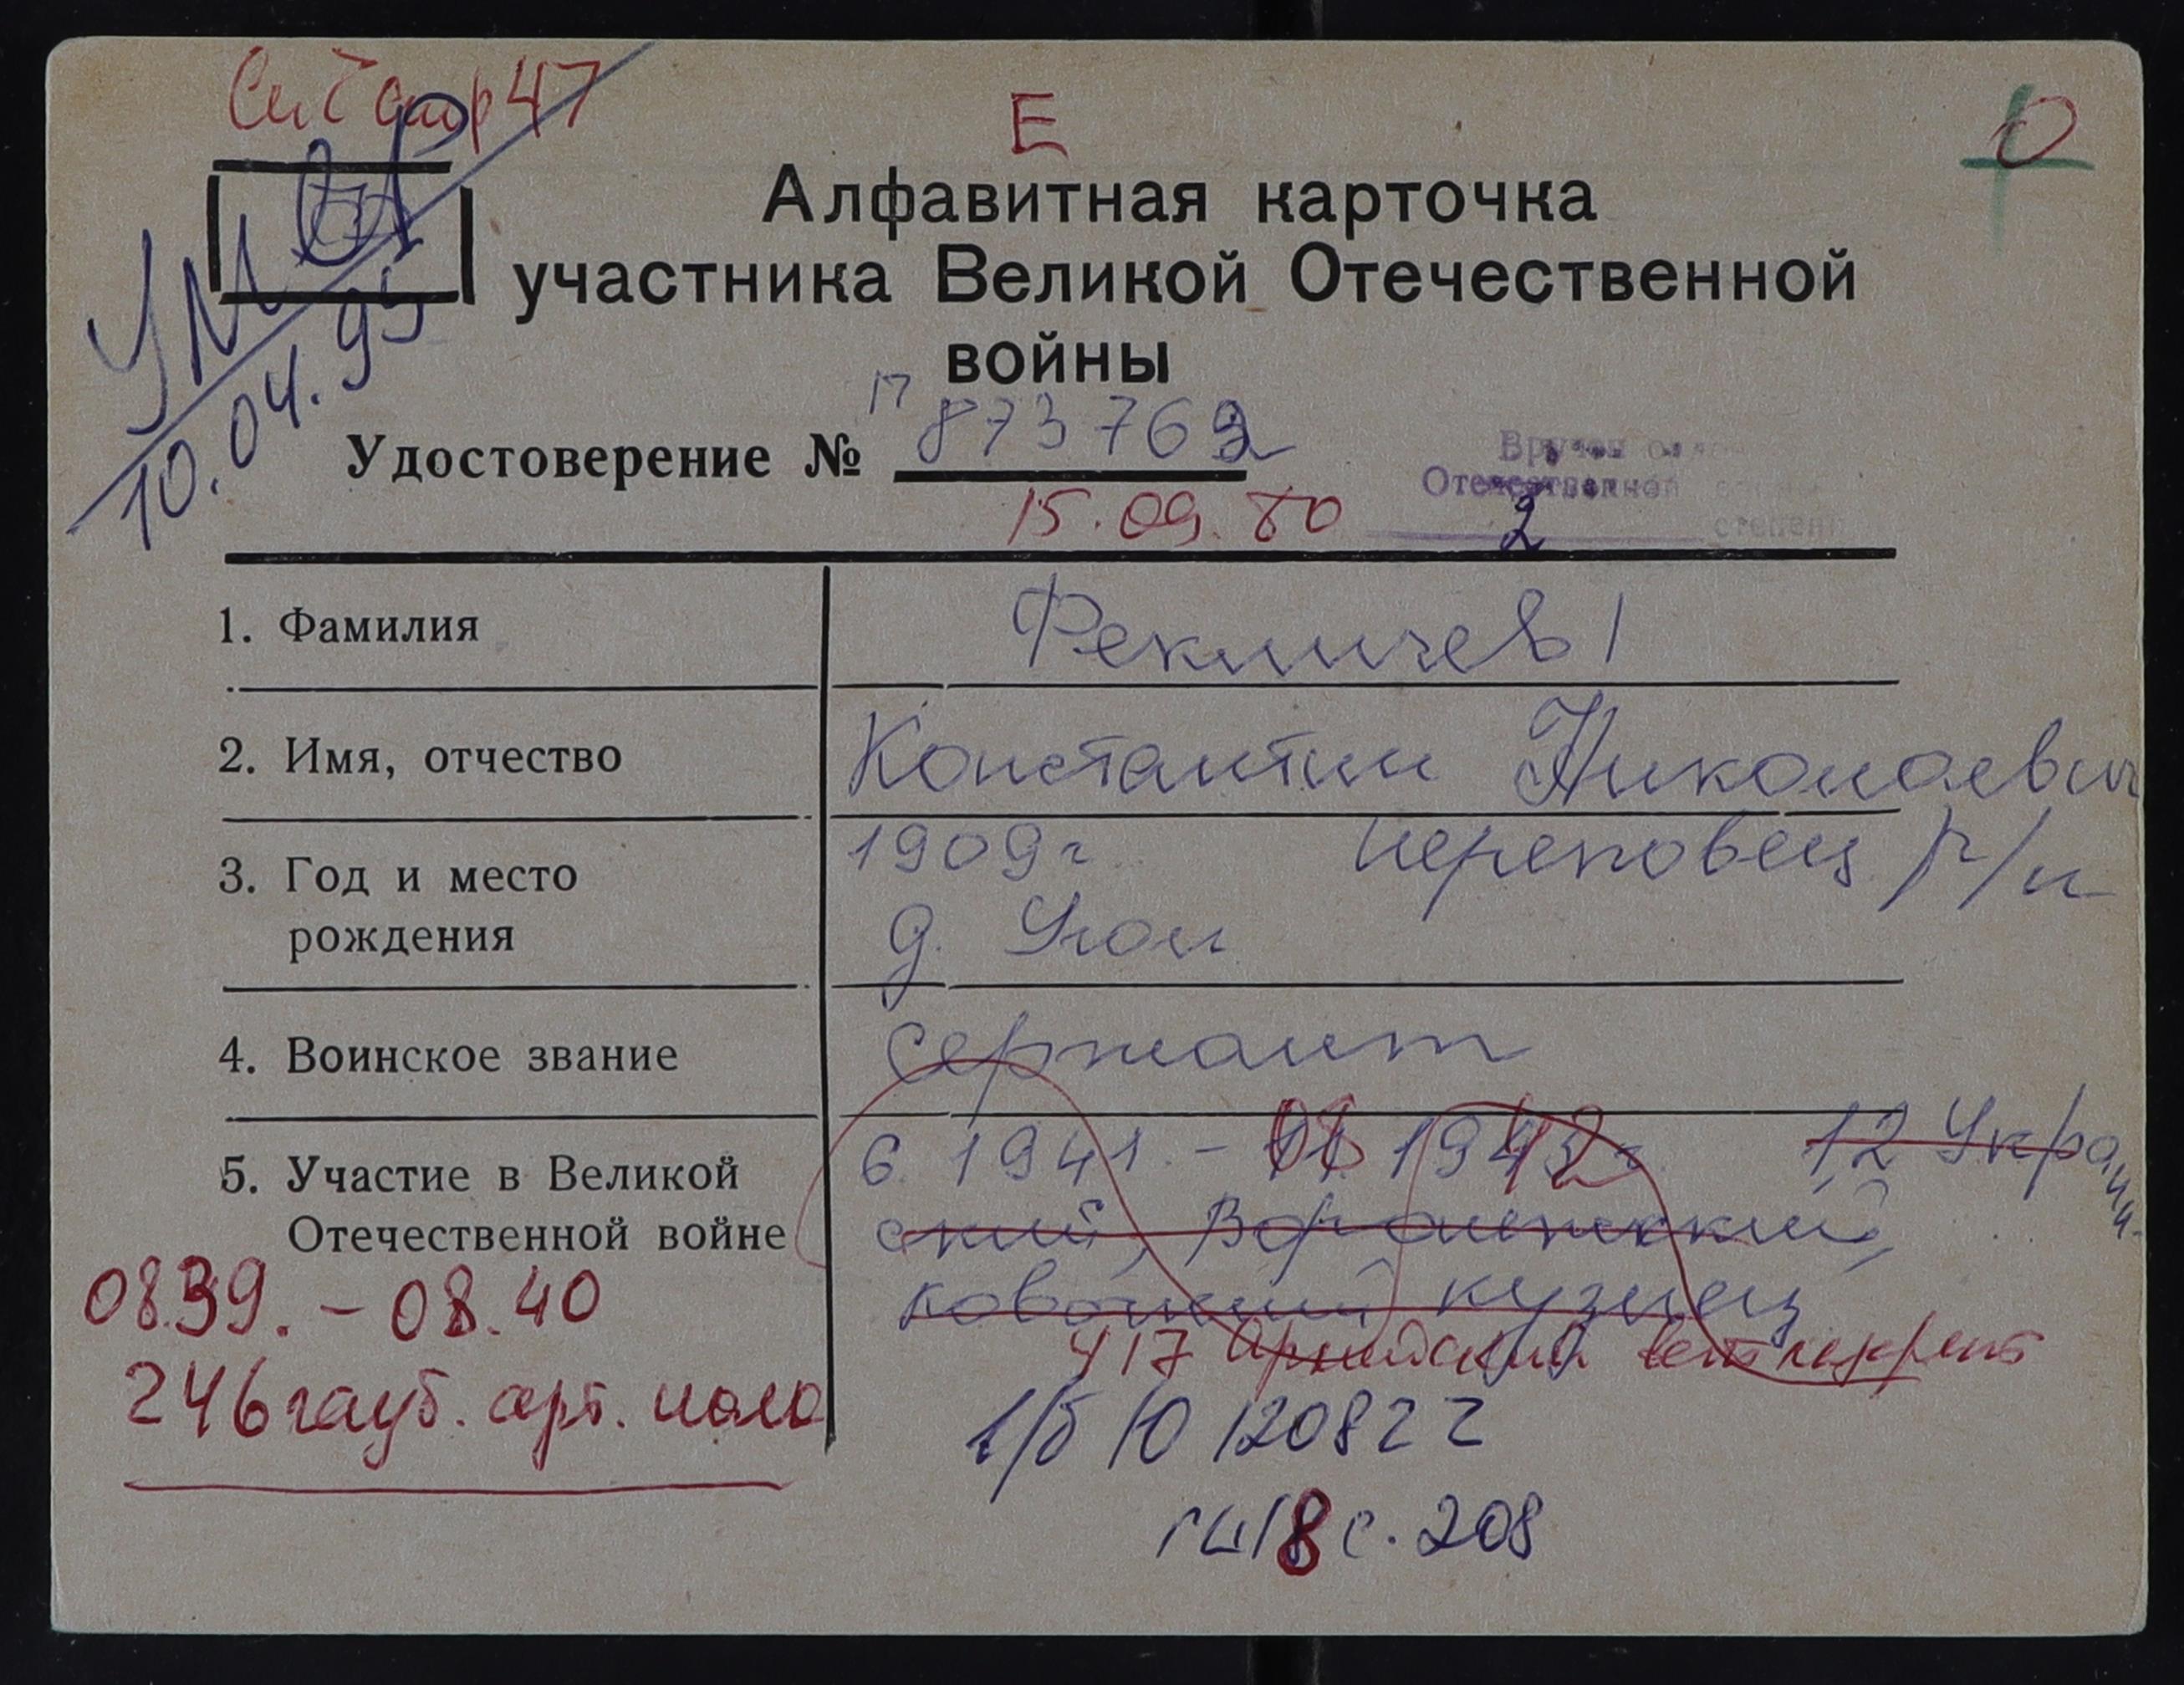 Сп С стр 47
Е
О
УМЕР
10.04.95
Алфавитная карточка
участника Великой Отечественной
войны
Удостоверение № 873769
15.09.80
Вручен
Отечественной
2 степени
1. Фамилия Фекличев
2. Имя, отчество Константин Николаевич
3. Год и место 1909г Череповец р/н
рождения д. Углы
4. Воинское звание сержант
5. Участие в Великой 6. 1941 - 1942 1,2 Украин-
Отечественной войне ский, Воронежский,
ковочный кузнец
417 Армейский вет лазарет
08.39. - 08.40
246 гауб. арт. полк
в/б Ю 120822
с. 208